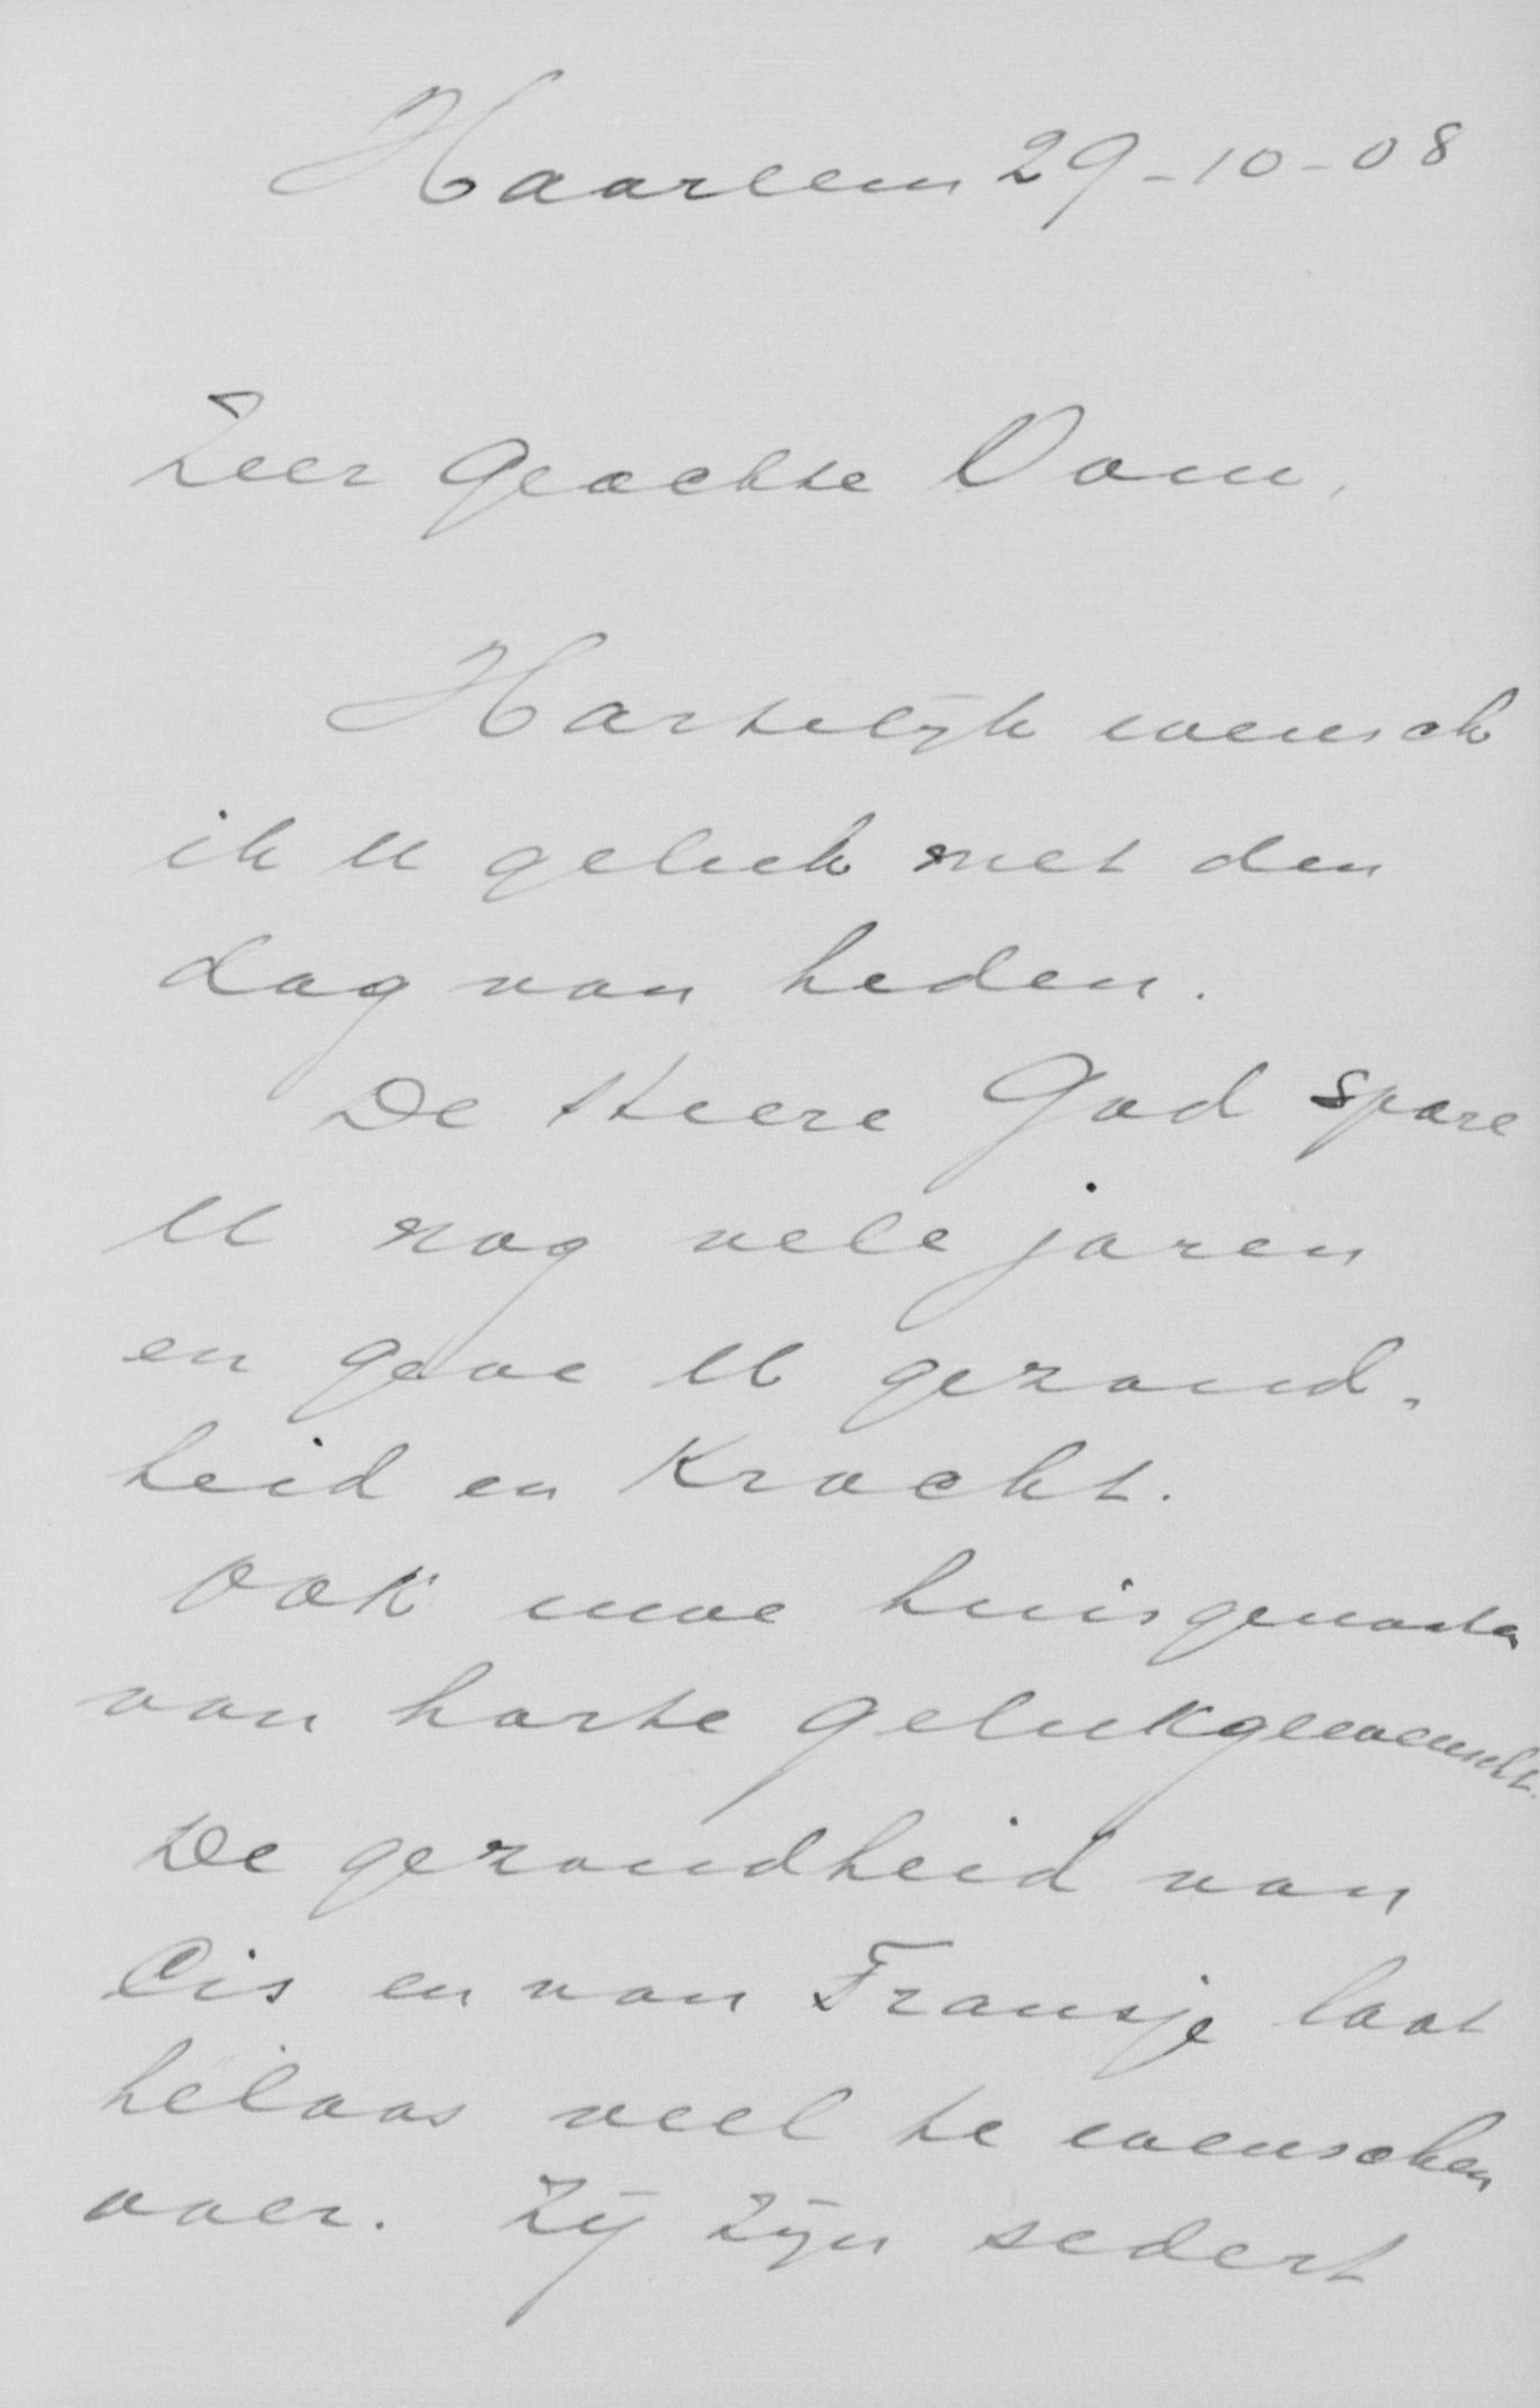 Haarlem 29-10-08
Zeer Geachte Oom,
Hartelijk wensch
ik U geluk met den
dag van heden.
De Heere God spare
U nog vele jaren
en geve U gezond-
heid en Kracht.
Ook uwe huisgenooten
van harte gelukgewenscht.
De gezondheid van
Cis en van Fransje laat
helaas veel te wenschen
over. Zij zijn sedert